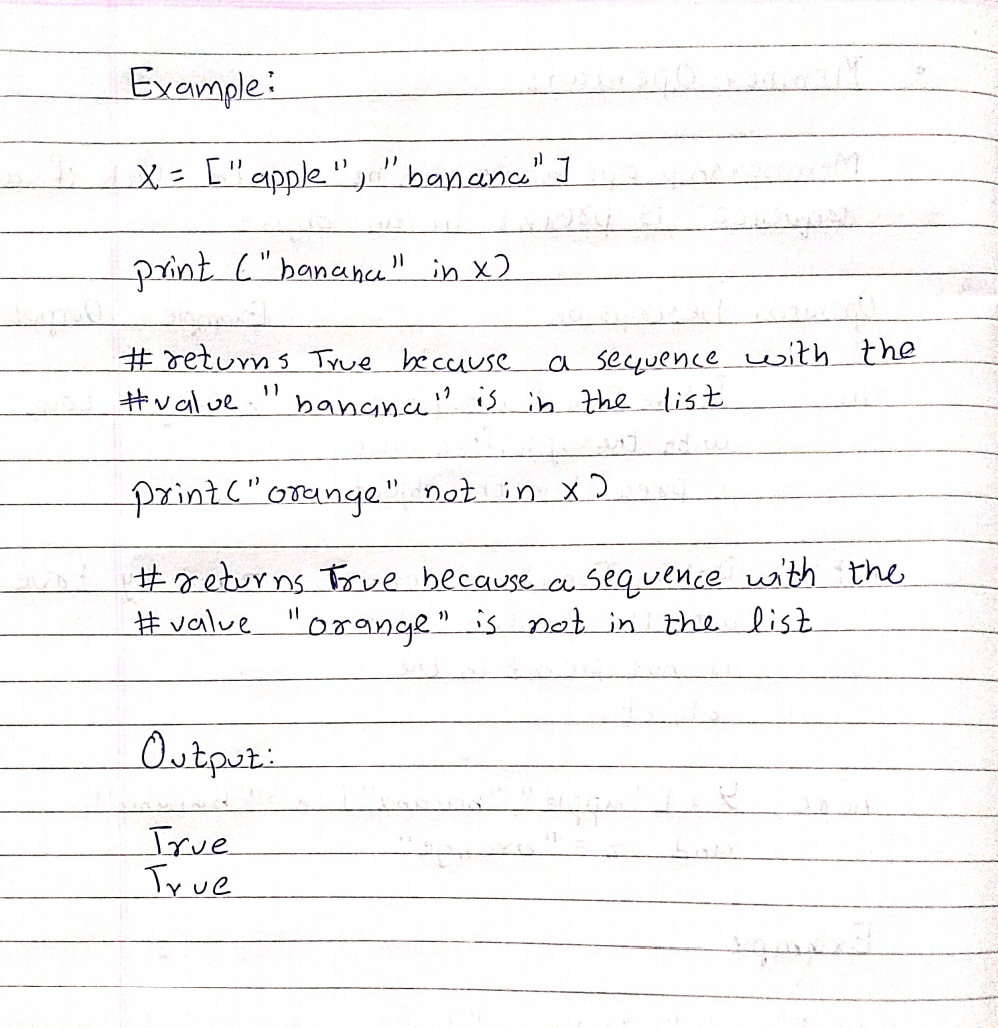 Example:
x = ["apple", "banana"]
print ("banana" in x)
# returns True because a sequence with the
# value "banana" is in the list
print("orange" not in x)
# returns True because a sequence with the
# value "orange" is not in the list
Output:
True
True